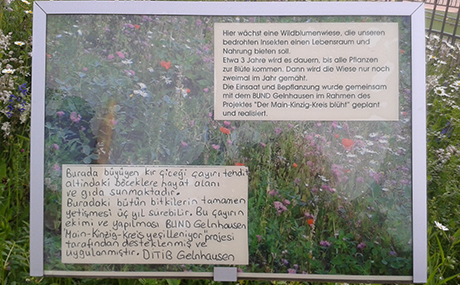 Hier wächst eine Wildblumenwiese, die unseren
bedrohten Insekten einen Lebensraum und
Nahrung bieten soll.
Etwa 3 Jahre wird es dauern, bis alle Pflanzen
zur Blüte kommen. Dann wird die Wiese nur noch
zweimal im Jahr gemäht.
Die Einsaat und Bepflanzung wurde gemeinsam
mit dem BUND Gelnhausen im Rahmen des
Projektes "Der Main-Kinzig-Kreis blüht" geplant
und realisiert.
Burada büyüyen kır çiçeği çayırı tehdit
altındaki böceklere hayat alanı
ve gıda sunmaktadır.
Buradaki bütün bitkilerin tamamen
yetişmesi üç yıl sürebilir. Bu çayırın
ekimi ve yapılması BUND Gelnhausen
Main-Kinzig-Kreis yeşilleniyor projesi
tarafından desteklenmiş ve
uygulanmıştır. DiTiB Gelnhausen